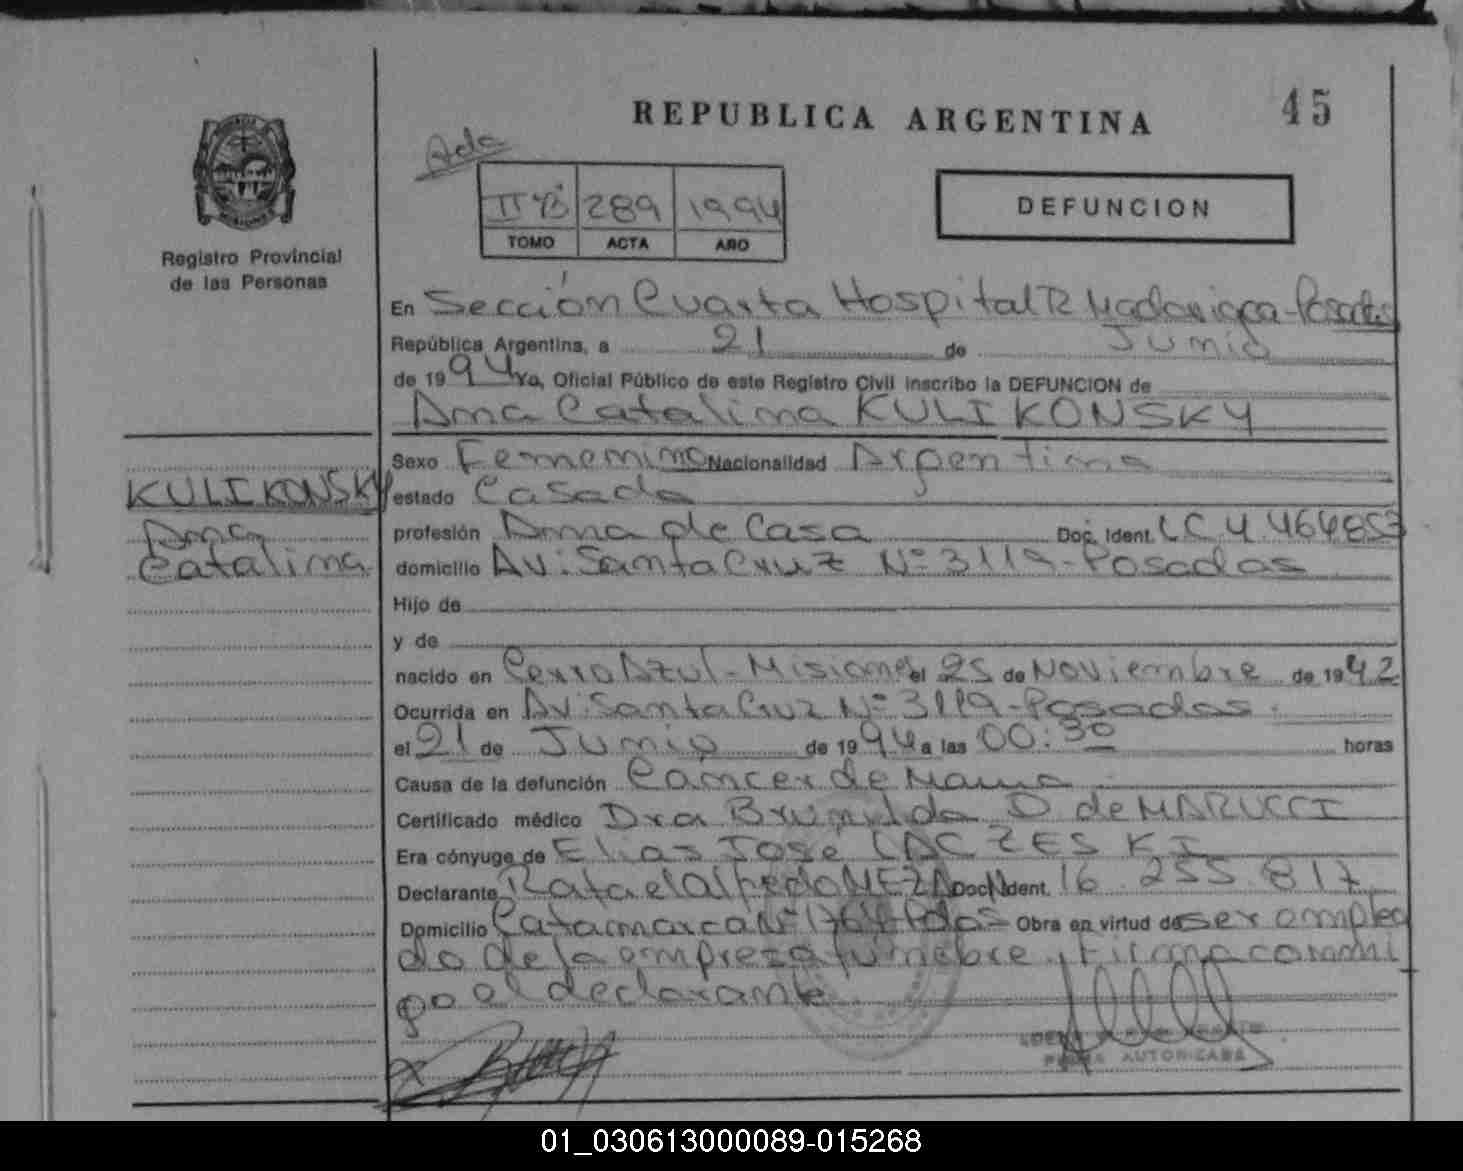 REPUBLICA ARGENTINA
45
Adc
II "B" 289 1994
TOMO ACTA AÑO
DEFUNCION
Registro Provincial
de las Personas
En Sección Cuarta Hospital R Madariaga-Posadas
República Argentina, a 21 de Junio
de 1994 Yo, Oficial Público de este Registro Civil inscribo la DEFUNCION de
Ana Catalina KULIKONSKY
Sexo Femenino Nacionalidad Argentina
KULIKONSKY
Ana
Catalina
estado Casada
profesión Ama de Casa Doc. Ident. LC 4.464853
domicilio AV: Santa Cruz Nº 3119-Posadas
Hijo de
y de
nacido en Cerro Azul-Misiones el 25 de Noviembre de 1942
Ocurrida en AV: Santa Cruz Nº 3119-Posadas.
el 21 de Junio de 1994 a las 00:30 horas
Causa de la defunción Cáncer de Mama
Certificado médico Dra Brunilda D. de MARUCCI
Era cónyuge de Elias José LACZESKI
Declarante Rafael Alfredo MEZA Doc. Ident. 16.255.817
Domicilio Catamarca Nº 1764-Pdas Obra en virtud de ser emplea
do de la empresa fúnebre, Firma conmi
go el declarante
AUTORIZADA
01_030613000089-015268